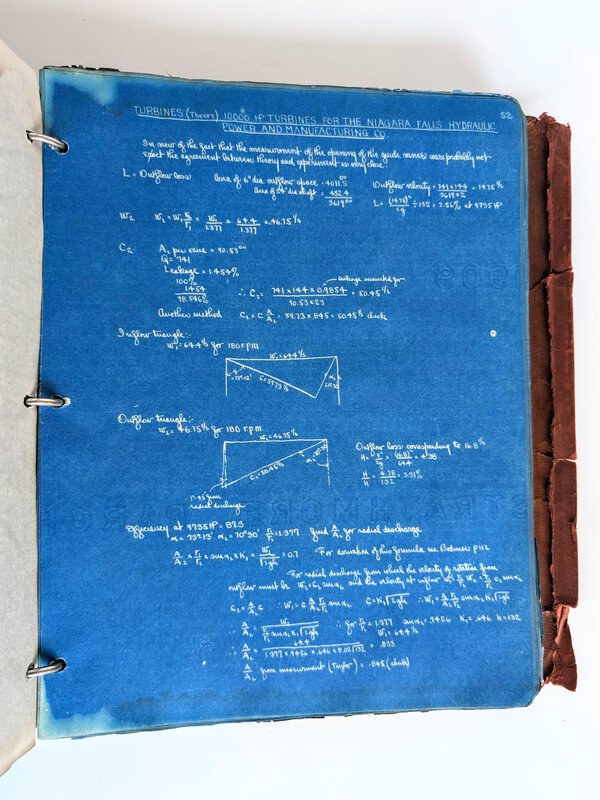 52
TURBINES (Theory) 10000 HP TURBINES FOR THE NIAGARA FALLS HYDRAULIC
POWER AND MANUFACTURING CO.
In view of the fact that the measurement of the opening of the guide vanes was probably not
exact the agreement between theory and experiment is very close.
L = Outflow loss
Area of 6" dia. outflow space = 4011.5
Area of 24" dia shaft = 452.4
3619
Outflow velocity = 741×144 / 3619×2 = 14.75 '/s
L = (14.75)² / 2g ÷ 132 = 2.56% at 9735 HP
W₂ W₂ = W₁ r₂/r₁ = W₁/1.377 = 64.4/1.377 = 46.75 '/s
C₂ A₂ per vane = 90.53
Q = 741
Leakage = 1.454%
100%
1.454
98.546%
leakage accounted for
∴ C₂ = 741 × 144 × 0.9854 / 90.53 × 23 = 50.45 '/s
Another method C₂ = C A/A₂ = 59.73 × .845 = 50.45 '/s check
Inflow triangle:-
W₁ = 64.4 '/s for 180 r.p.m
W₁ = 64.4 '/s
α = 73°13'
C = 59.73 '/s
Outflow triangle:-
W₂ = 46.75 '/s for 180 r.p.m.
W₂ = 46.75 '/s
C₂ = 50.45 '/s
α₂ = 70°30'
1°.45' from
radial discharge
Outflow loss corresponding to 16.8 '/s
H = V²/2g = (16.8)²/64.4 = 4.38
H/h = 4.38/132 = 3.31%
Efficiency at 9735 HP = 87.3
α = 73°13' α₂ = 70°30' r₁/r₂ = 1.377 find A/A₂ for radial discharge
A/A₂ × r₂/r₁ × sin α₂ × K₁ = W₁/√2gh = 0.7 For derivation of this formula see Bodmer p 112
For radial discharge from wheel the velocity of rotation from
outflow must be W₂ = C₂ sin α₂ and the velocity at inflow
C₂ = A/A₂ C ∴ W₂ = C A/A₂ sin α₂ C = K₁√2gh
∴ A/A₂ = W₁ / r₁/r₂ sin α₂ K₁ √2gh ∴ for r₁/r₂ = 1.377 sin α₂ = .9426 K₁ = .646 h = 132
W₁ = 64.4 '/s
∴ A/A₂ = 64.4 / 1.377 × .9426 × .646 × 8.02√132 = .833
A/A₂ from measurement (Taylor) = .845 (check)